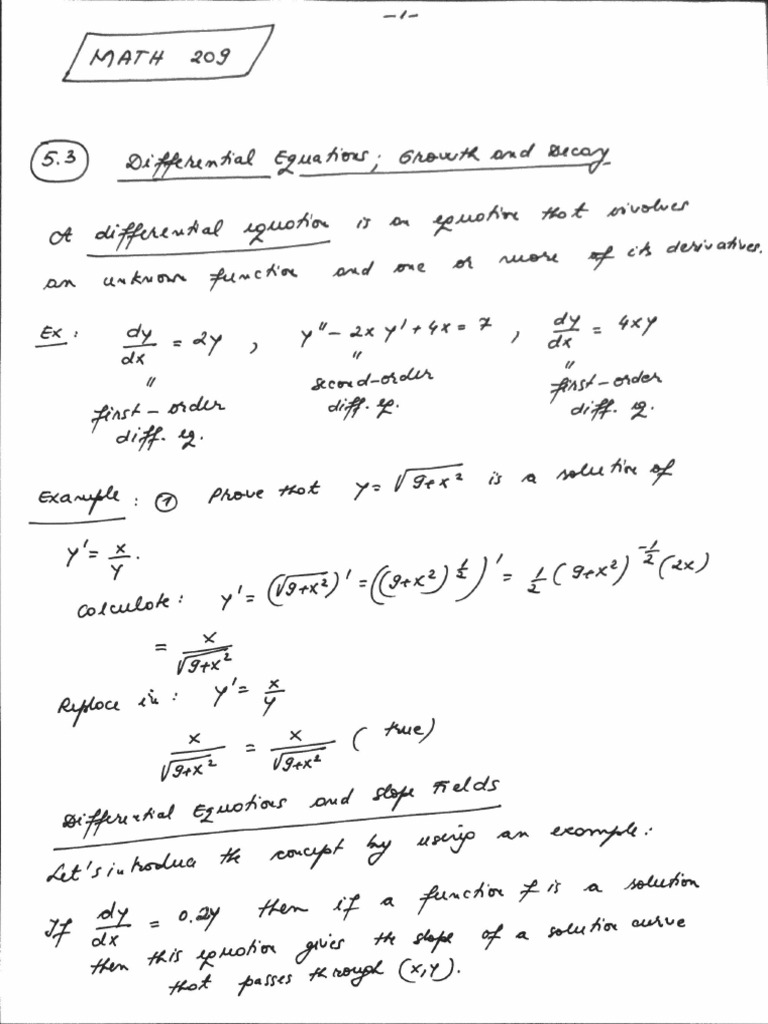 -1-
MATH 209
5.3 Differential Equations; Growth and Decay
A differential equation is an equation that involves
an unknown function and one or more of its derivatives.
Ex: dy/dx = 2y, y'' - 2x y' + 4x = 7, dy/dx = 4xy
" " "
first-order second-order first-order
diff. eq. diff. eq. diff. eq.
Example: ① Prove that y = √(9+x²) is a solution of
y' = x/y.
Calculate: y' = (√(9+x²))' = ((9+x²)^(1/2))' = 1/2 (9+x²)^(-1/2) (2x)
= x/√(9+x²)
Replace in: y' = x/y
x/√(9+x²) = x/√(9+x²) (true)
Differential Equations and Slope Fields
Let's introduce the concept by using an example:
If dy/dx = 0.2y then if a function f is a solution
then this equation gives the slope of a solution curve
that passes through (x,y).